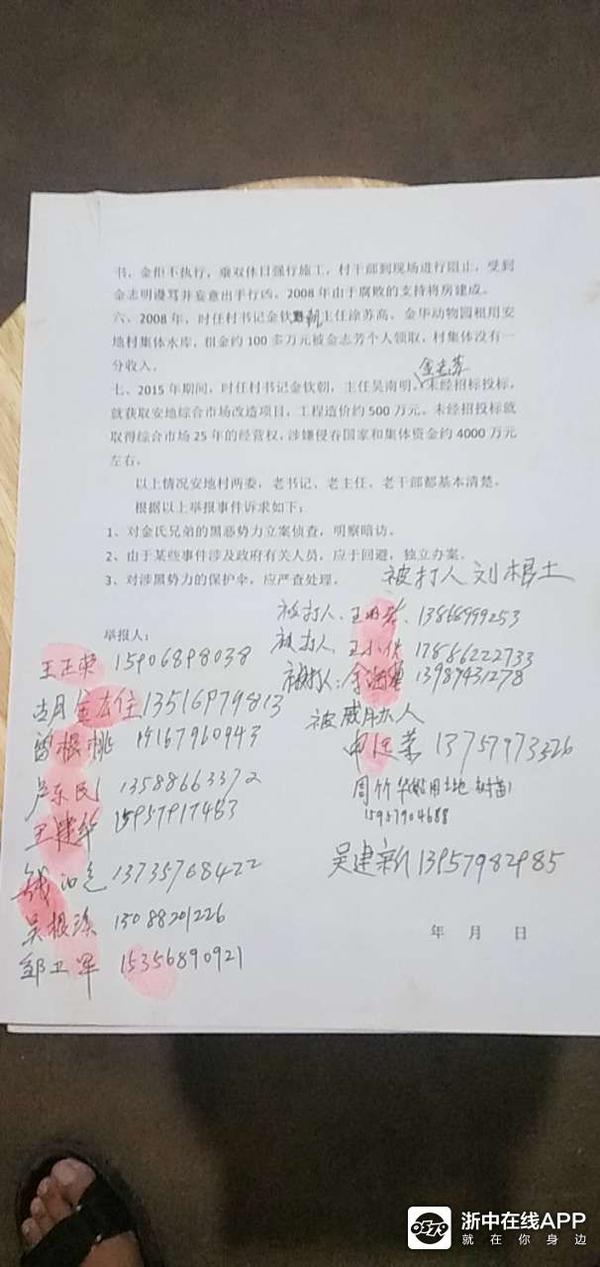 书，金拒不执行，乘双休日强行施工，村干部到现场进行阻止，受到
金志明谩骂并妄意出手行凶。2008年由于腐败的支持将房建成。
六、2008年，时任村书记金钦朝主任涂苏高，金华动物园租用安
地村集体水库，租金约100多万元被金志芳个人领取，村集体没有一
分收入。
金志芳
七、2015年期间，时任村书记金钦朝，主任吴南明，未经招标投标，
就获取安地综合市场改造项目，工程造价约500万元。未经招投标就
取得综合市场25年的经营权，涉嫌侵吞国家和集体资金约4000万元
左右。
以上情况安地村两委，老书记、老主任、老干部都基本清楚。
根据以上举报事件诉求如下：
1、对金氏兄弟的黑恶势力立案侦查，明察暗访。
2、由于某些事件涉及政府有关人员，应于回避，独立办案。
3、对涉黑势力的保护伞，应严查处理。
被打人 刘根土
被打人：王 13868999253
举报人：
被打人：王小 17886222733
王正荣 15906898038
被打人：余 13989431278
胡金 13516979813
被威胁人
曾根桃 167960943
申 荣 13757973326
卢东民 13588663372
周竹华 用土地 树苗
王建华 15957917483
15957904688
钱 13735768422
吴建新 13957982985
吴根 15088201226
年 月 日
邹卫军 15356890921
0579
浙中在线APP
就在你身边